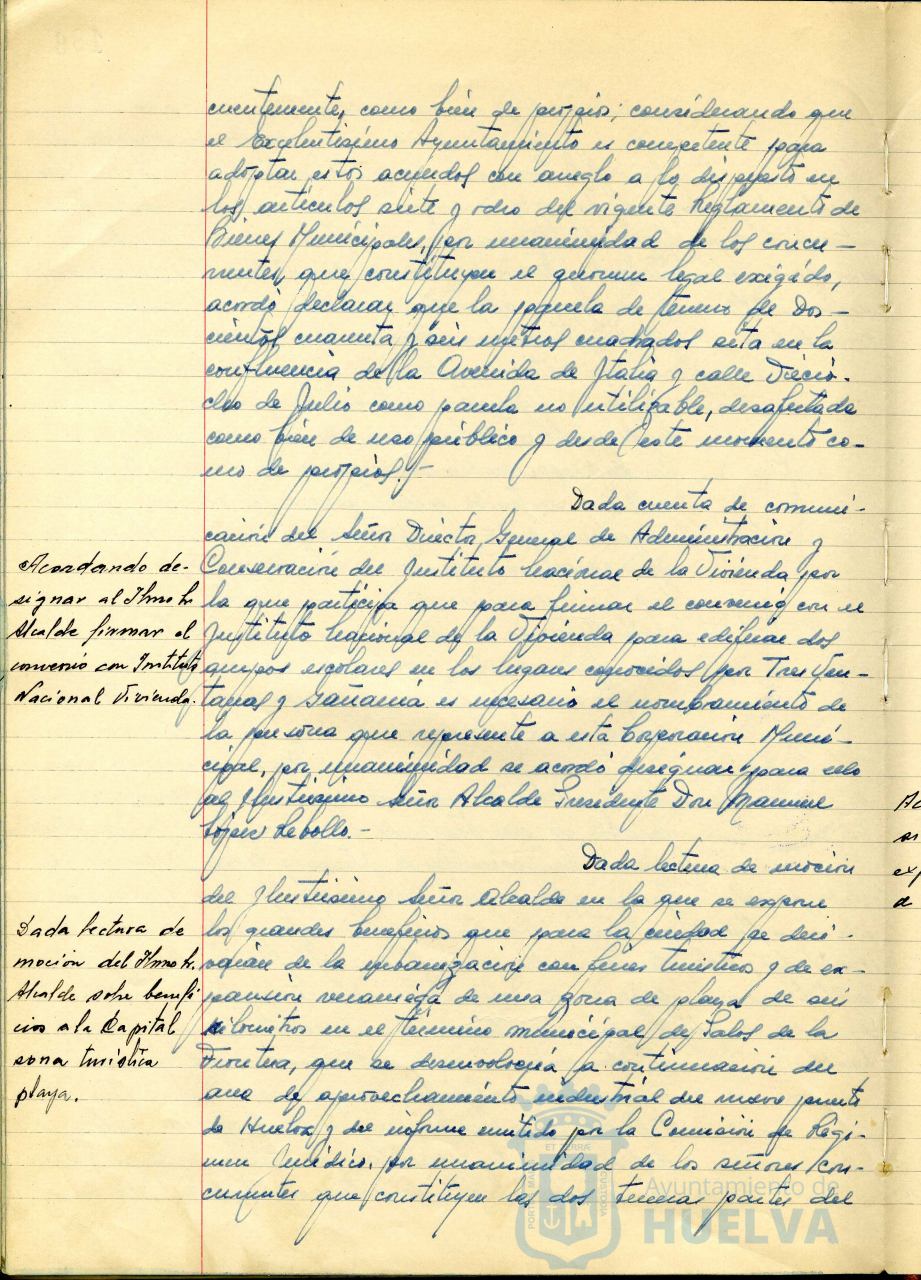 cuentemente, como bien de propios; considerando que
el Excelentisimo Ayuntamiento es competente para
adoptar estos acuerdos con arreglo a lo dispuesto en
los articulos siete y ocho del vigente Reglamento de
Bienes Municipales, por unanimidad de los concu-
rrentes, que constituyen el quorum legal exigido,
acordó declarar que la parcela de terreno de Dos-
cientos cuarenta y seis metros cuadrados sita en la
confluencia de la Avenida de Italia y calle Diecio-
cho de Julio como parcela no utilizable, desafectada
como bien de uso público y desde este momento co-
mo de propios.-
Dada cuenta de comuni-
cación del Señor Director General de Administración y
Conservación del Instituto Nacional de la Vivienda por
la que participa que para firmar el convenio con el
Instituto Nacional de la Vivienda para edificar dos
grupos escolares en los lugares conocidos por Tres Ven-
tanas y Gañania es necesario el nombramiento de
la persona que represente a esta Corporación Muni-
cipal, por unanimidad se acordó designar para ello
al Ilustrisimo Señor Alcalde Presidente Don Manuel
López Rebollo.-
Acordando de-
signar al Ilmo Sr.
Alcalde firmar el
convenio con Instituto
Nacional Vivienda.
Dada lectura de moción
del Ilustrisimo Señor Alcalde en la que se expone
los grandes beneficios que para la ciudad se deri-
varian de la urbanización con fines turisticos y de ex-
pansión veraniega de una zona de playa de seis
kilometros en el término municipal de Palos de la
Frontera, que se desenvolveria a continuación del
area de aprovechamiento industrial del nuevo puerto
de Huelva y del informe emitido por la Comisión de Régi-
men Juridico, por unanimidad de los señores con-
currentes que constituyen las dos terceras partes del
Dada lectura de
moción del Ilmo Sr.
Alcalde sobre benefi
cios a la Capital
zona turística
playa.
Ayuntamiento de
HUELVA